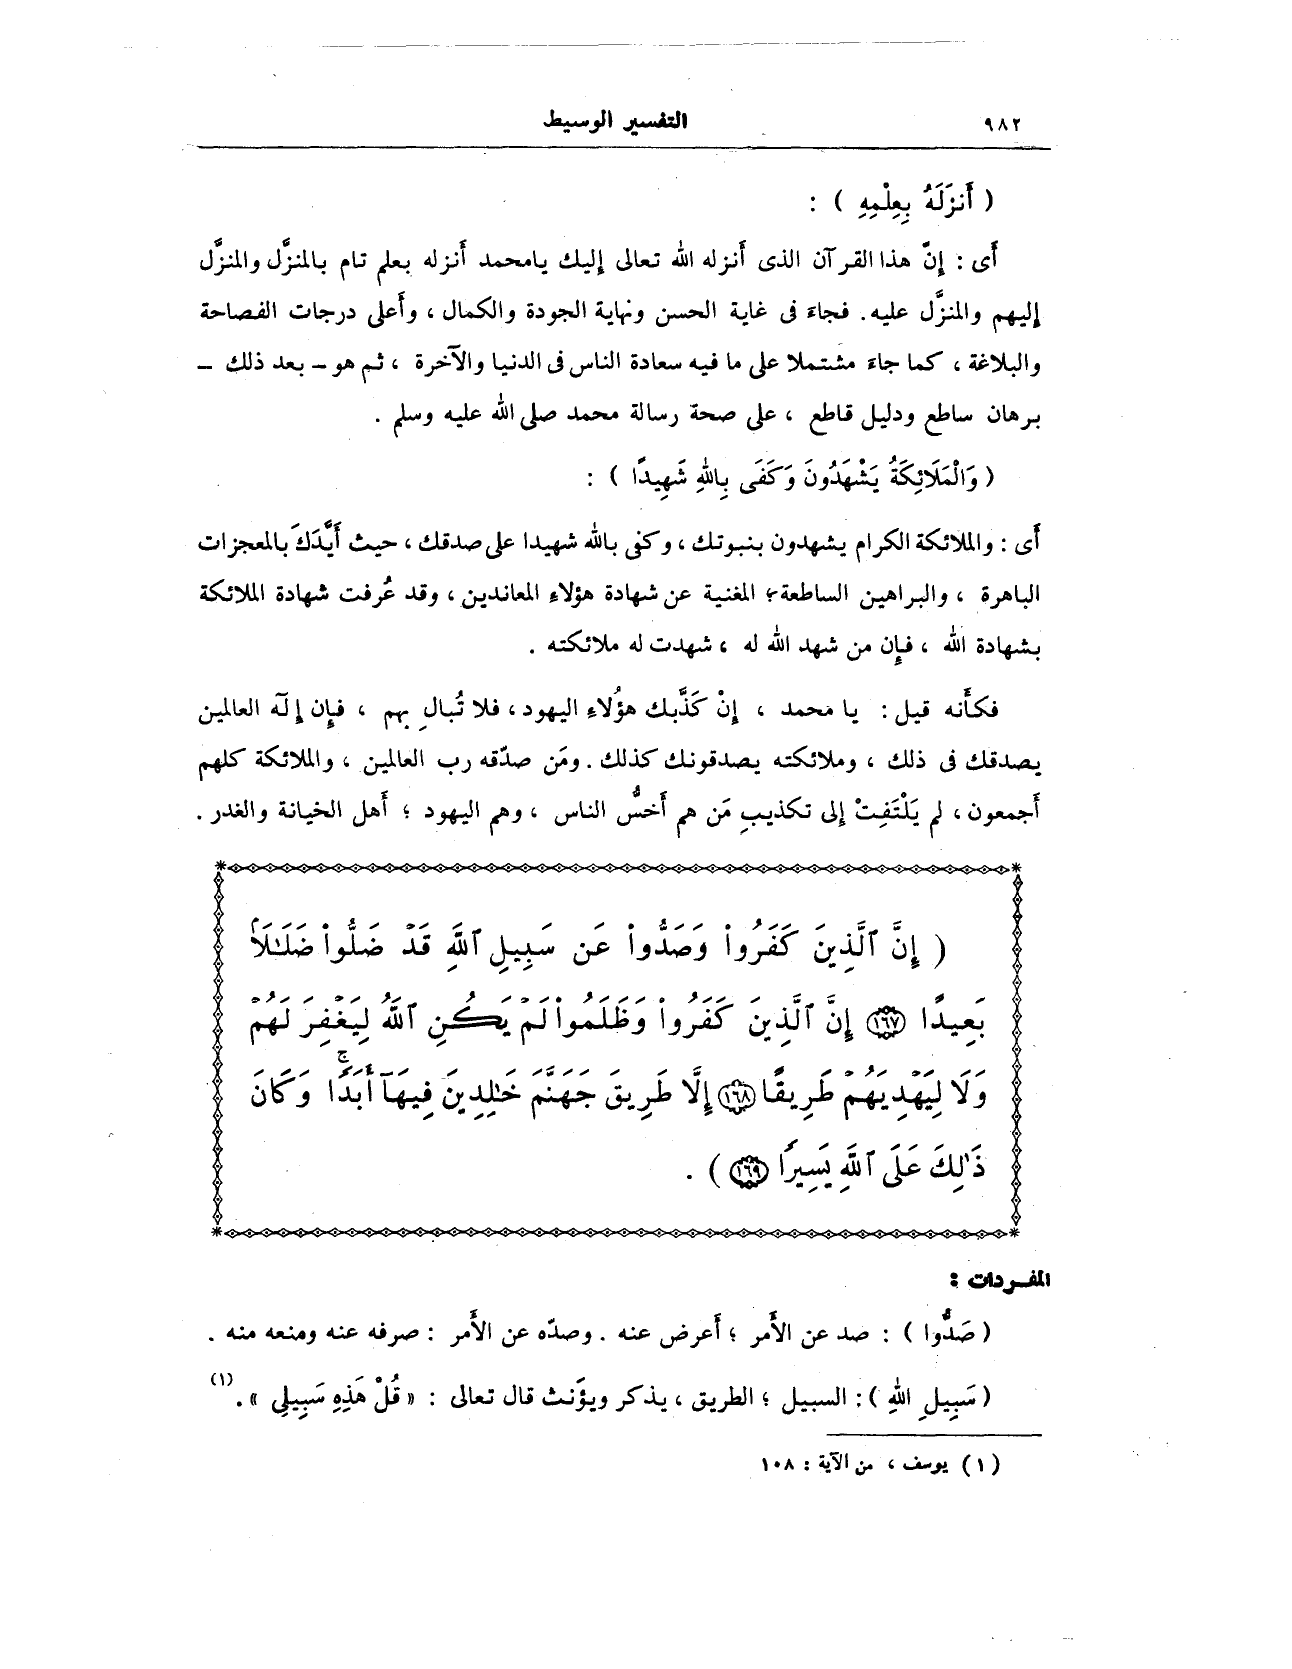 ٩٨٢ التفسير الوسيط
( أَنزَلَهُ بِعِلْمِهِ ) :
أى : إنّ هذا القرآن الذى أنزله الله تعالى إليك يامحمد أنزله بعلم تام بالمنزَّل والمنزَّل
إليهم والمنزَّل عليه. فجاءَ فى غاية الحسن ونهاية الجودة والكمال ، وأعلى درجات الفصاحة
والبلاغة ، كما جاءَ مشتملا على ما فيه سعادة الناس فى الدنيا والآخرة ، ثم هو – بعد ذلك –
برهان ساطع ودليل قاطع ، على صحة رسالة محمد صلى الله عليه وسلم .
( وَالْمَلَائِكَةُ يَشْهَدُونَ وَكَفَى بِاللهِ شَهِيدًا ) :
أى : والملائكة الكرام يشهدون بنبوتك ، وكفى بالله شهيدا على صدقك ، حيث أَيَّدَكَ بالمعجزات
الباهرة ، والبراهين الساطعة ، المغنية عن شهادة هؤلاءِ المعاندين ، وقد عُرفت شهادة الملائكة
بشهادة الله ، فإن من شهد الله له ، شهدت له ملائكته .
فكأَنه قيل : يا محمد ، إِنْ كَذَّبك هؤُلاءِ اليهود ، فلا تُبالِ بهم ، فإن إلَه العالمين
يصدقك فى ذلك ، وملائكته يصدقونك كذلك . ومَن صدّقه رب العالمين ، والملائكة كلهم
أجمعون ، لم يَلْتَفِتْ إلى تكذيبِ مَن هم أخسُّ الناس ، وهم اليهود ؛ أهل الخيانة والغدر .
( إِنَّ ٱلَّذِينَ كَفَرُوا۟ وَصَدُّوا۟ عَن سَبِيلِ ٱللَّهِ قَدْ ضَلُّوا۟ ضَلَـٰلًۢا
بَعِيدًا ١٦٧ إِنَّ ٱلَّذِينَ كَفَرُوا۟ وَظَلَمُوا۟ لَمْ يَكُنِ ٱللَّهُ لِيَغْفِرَ لَهُمْ
وَلَا لِيَهْدِيَهُمْ طَرِيقًا ١٦٨ إِلَّا طَرِيقَ جَهَنَّمَ خَـٰلِدِينَ فِيهَآ أَبَدًاۚ وَكَانَ
ذَٰلِكَ عَلَى ٱللَّهِ يَسِيرًا ١٦٩ ) .
المفـردات :
( صَدُّوا ) : صد عن الأَمر ؛ أعرض عنه . وصدّه عن الأَمر : صرفه عنه ومنعه منه .
( سَبِيلِ اللهِ ) : السبيل ؛ الطريق ، يذكر ويؤَنث قال تعالى : « قُلْ هَذِهِ سَبِيلِى » . (١)
( ١ ) يوسف ، من الآية : ١٠٨